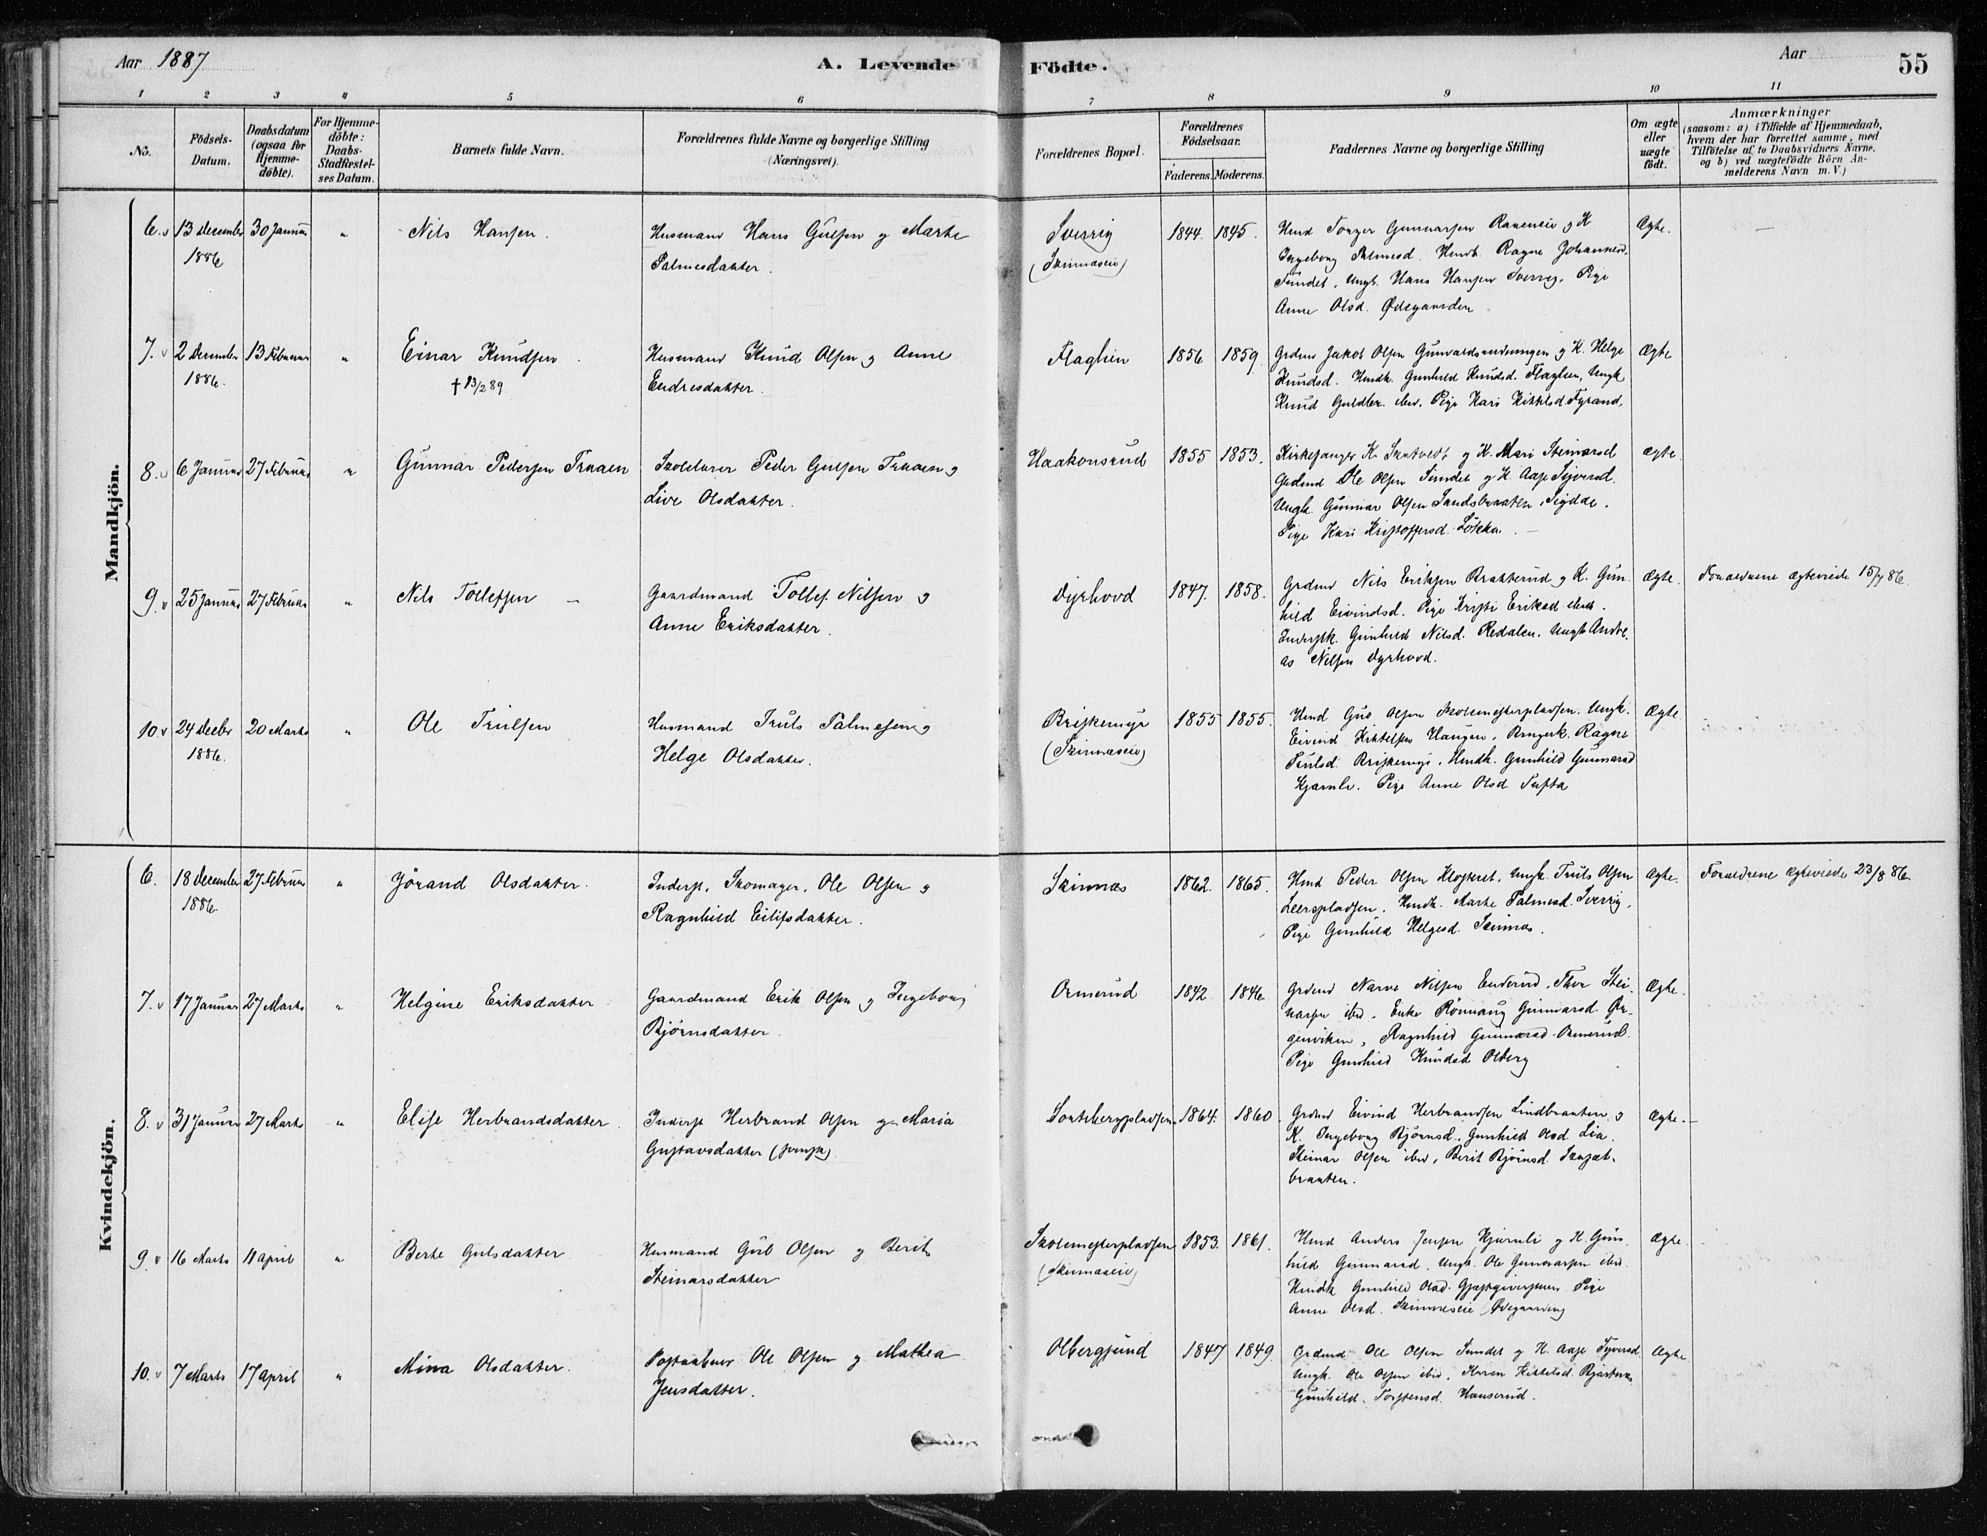 Aar 1887
A. Levende Födte.
Aar
55
1 2 3 4 5 6 7 8 9 10 11
No.
Födsels-Datum.
Daabsdatum (ogsaa for Hjemme-döbte).
For Hjemme-döbte: Daabs-Stadfæstel-ses Datum.
Barnets fulde Navn.
Forældrenes fulde Navne og borgerlige Stilling (Næringsvei).
Forældrenes Bopæl.
Forældrenes Födselsaar.
Faderens. Moderens.
Faddernes Navne og borgerlige Stilling
Om ægte eller uægte födt.
Anmærkninger
(saasom: a) i Tilfælde af Hjemmedaab, hvem der har forrettet samme, med Tilföielse af to Daabsvidners Navne. og b) ved uægtefödte Börn An-melderens Navn m. V.)
Mandkjön.
6. 13 december 30 Januar " Nils Hansen. Husmand Hans Gulsen og Marte Sverrig 1844. 1845. Hmd Gunnarsen og K Ægte.
1886 Palmesdatter. (Skinnæseie) Ingeborg Palmesd. Hmdk. Ragne Johannesd.
Sundet, Ungk. Hans Hansen Sverrig, Pige
Anne Olsd. Ødegaarden
7. 2 December 13 Februar " Einar Knudsen Husmand Knud Olsen og Anne Flaglien 1856 1859. Grdmd Jakob Olsen og K. Helge Ægte
1886. † 13/2 89. Endresdatter. Knudsd. Hmdk. Gunhild Knudsd. Flaglien, Ungk
Knud Guldbr. ibid. Pige Kari Kittelsd. Fyrand.
8. 6 Januar 27 Februar " Gunnar Pedersen Traaen Skolelærer Peder Gulsen Traaen og Haakonsrud 1855 1853. Kirkesanger K. og K. Mari Steinarsd Ægte
Live Olsdatter. Grdmd Ole Olsen Sundet og K. Aase Syversd.
Ungk. Gunnar Olsen Sandsbraaten, Sigdal.
Pige Kari Kristoffersd. Løkka.
9. 25 Januar 27 Februar " Nils Tollefsen Gaardmand Tollef Nilsen og Dyrhovd 1847. 1858. Grdmd Nils Eriksen Bratterud og K. Gun- Ægte. Forældrene ægteviede 15/7 86.
Anne Eriksdatter. hild Eivindsd. Pige Kristi Eriksd ibid.
Inderstk. Gunhild Nilsd. Redalen. Ungk Andre-
as Nilsen Dyrhovd.
10. 24 Decbr 20 Marts " Ole Trulsen Husmand Truls Palmesen og Briskemyr 1855 1855. Hmd Gul Olsen Skolemesterpladsen. Ungk. Ægte
1886. Helge Olsdatter. (Skinnæseie) Eivind Kittelsen Haugen, Ragne
Trulsd. Briskemyr, Hmdk. Gunhild Gunnarsd
Hjarnli. Pige Anne Olsd Tufta
Kvindekjön.
6. 18 December 27 Februar " Jørand Olsdatter. Inderst, Skomager, Ole Olsen og Skinnæs 1862. 1865. Hmd Peder Olsen Klosteret, Ungk. Truls Olsen Ægte. Forældrene ægteviede 23/8 86.
1886 Ragnhild Eilifsdatter. Leerspladsen, Hmdk. Marte Palmesd. Sverrig,
Pige Gunhild Helgesd. Skinnæs.
7. 17 Januar 27 Marts " Helgine Eriksdatter Gaardmand Erik Olsen og Ingeborg Ormerud 1842. 1846. Grdmd Narve Nilsen Enderud, Thor Stei- Ægte.
Bjørnsdatter. narsen ibid. Enke Rønnaug Gunnarsd. Ør-
genviken, Ragnhild Gunnarsd Ormerud.
Pige Gunhild Knudsd Olberg
8. 31 Januar 27 Marts " Elise Herbrandsdatter. Inderst Herbrand Olsen og Maria 1864. 1860. Grdmd Eivind Herbrandsen Lindbraaten og Ægte.
Gustavsdatter (svensk). K. Ingeborg Bjørnsd., Gunhild Olsd. Lia.
Steinar Olsen ibid, Berit Bjørnsd.
braaten.
9. 16 Marts 11 April " Berte Gulsdatter Husmand Gul Olsen og Berit Skolemesterpladsen 1853. 1861. Hmd Anders Jensen Hjarnli og K. Gun- Ægte
Steinarsdatter (Skinnæseie) hild Gunnarsd. Ungk. Ole Gunnarsen ibid.
Hmdk Gunhild Olsd. Pige
Anne Olsd. Skinnæseie (Ødegaarden)
10. 7 Marts 17 April " Mina Olsdatter. Postaabner Ole Olsen og Mathea Olbergsund 1847 1849. Grdmd Ole Olsen Sundet og K. Aase Syversd. Ægte
Jensdatter. Ungk. Ole Olsen ibid. Karen Kittelsd. Bjertnæs
Gunhild Torstensd. Hanserud.